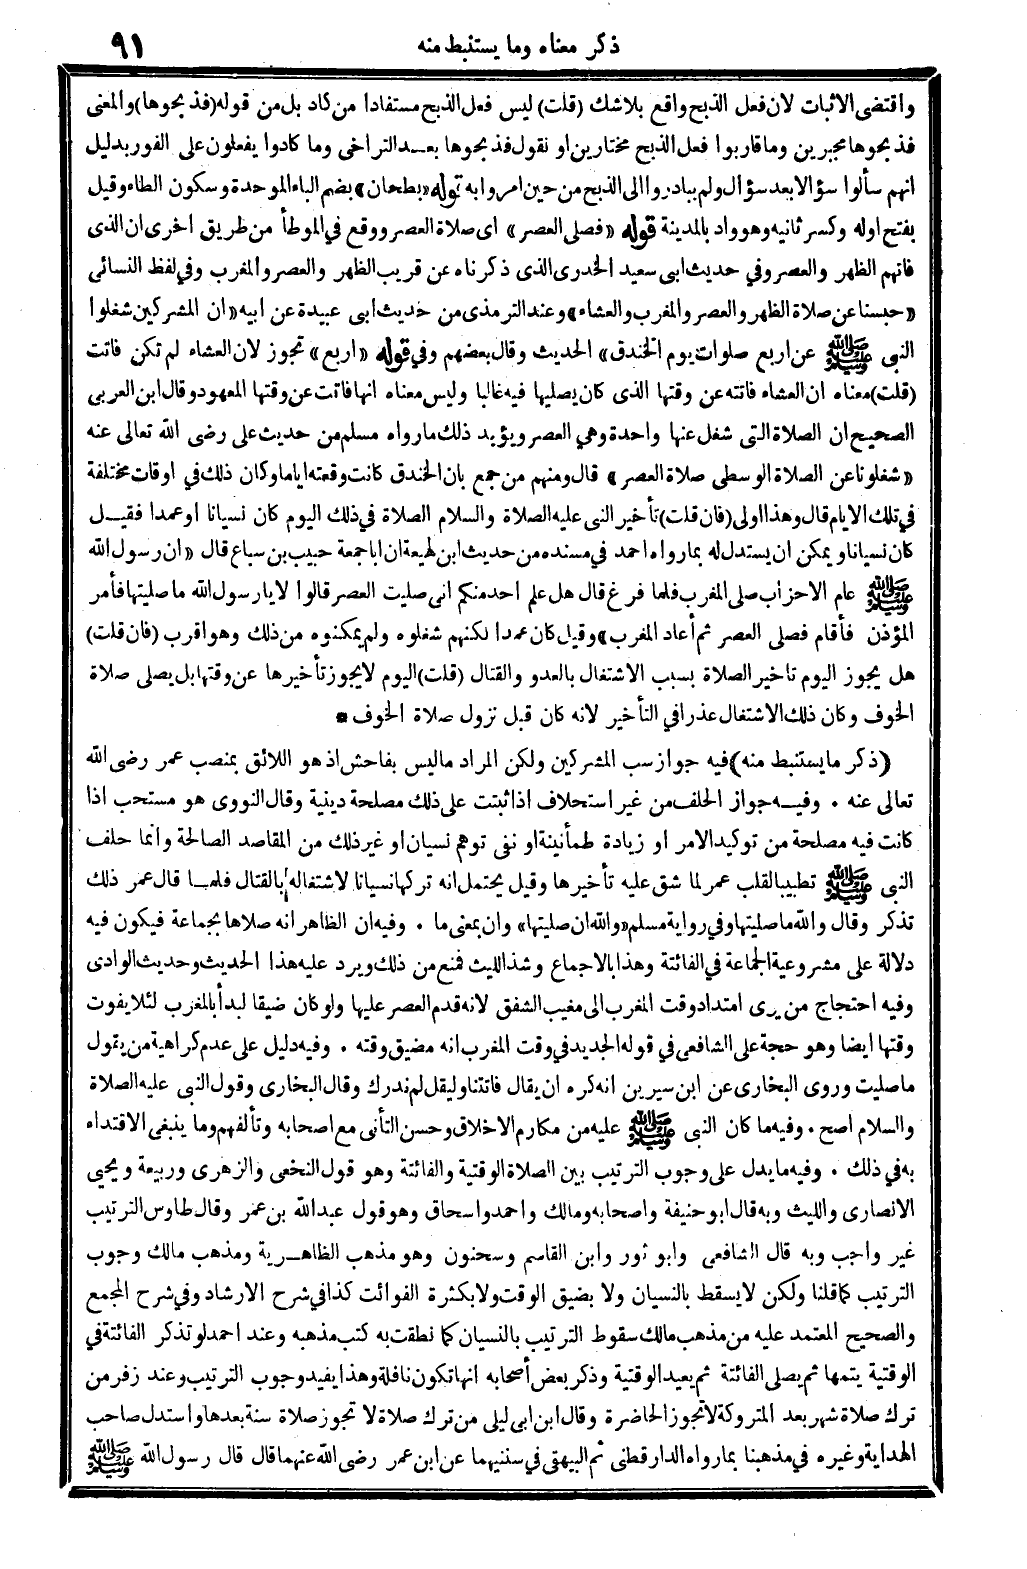 ذكر معناه وما يستنبط منه ٩١
واقتضى الاثبات لان فعل الذبح واقع بلاشك (قلت) ليس فعل الذبح مستفادا من كاد بل من قوله (فذبحوها) والمعنى
فذبحوها مجبرين وما قاربوا فعل الذبح مختارين او نقول فذبحوها بعــد التراخى وما كادوا يفعلون على الفور بدليل
انهم سألوا سؤالا بعد سؤال ولم يبادروا الى الذبح من حين امروا به قوله «بطحان» بضم الباء الموحدة وسكون الطاء وقيل
بفتح اوله وكسر ثانيه وهو واد بالمدينة قوله «فصلى العصر» اى صلاة العصر ووقع في الموطأ من طريق اخرى ان الذى
فاتهم الظهر والعصر وفي حديث ابى سعيد الخدرى الذى ذكرناه عن قريب الظهر والعصر والمغرب وفي لفظ النسائى
«حبسنا عن صلاة الظهر والعصر والمغرب والعشاء» وعند الترمذى من حديث ابى عبيدة عن ابيه «ان المشركين شغلوا
النبى ﷺ عن اربع صلوات يوم الخندق» الحديث وقال بعضهم وفي قوله «اربع» تجوز لان العشاء لم تكن فاتت
(قلت) معناه ان العشاء فاتته عن وقتها الذى كان يصليها فيه غالبا وليس معناه انها فاتت عن وقتها المعهود وقال ابن العربى
الصحيح ان الصلاة التى شغل عنها واحدة وهي العصر ويؤيد ذلك مارواه مسلم من حديث على رضى الله تعالى عنه
«شغلونا عن الصلاة الوسطى صلاة العصر» قال ومنهم من جمع بان الخندق كانت وقعته اياما وكان ذلك في اوقات مختلفة
في تلك الايام قال وهذا اولى (فان قلت) تأخير النبى عليه الصلاة والسلام الصلاة في ذلك اليوم كان نسيانا او عمدا فقيــل
كان نسيانا ويمكن ان يستدل له بمارواه احمد في مسنده من حديث ابن لهيعة ان ابا جمعة حبيب بن سباع قال «ان رسول الله
ﷺ عام الاحزاب صلى المغرب فلما فرغ قال هل علم احد منكم انى صليت العصر قالوا لا يارسول الله ما صليتها فأمر
المؤذن فأقام فصلى العصر ثم أعاد المغرب» وقيل كان عمدا لكنهم شغلوه ولم يمكنوه من ذلك وهو اقرب (فان قلت)
هل يجوز اليوم تاخير الصلاة بسبب الاشتغال بالعدو والقتال (قلت) اليوم لا يجوز تأخيرها عن وقتها بل يصلى صلاة
الخوف وكان ذلك الاشتغال عذرا في التأخير لانه كان قبل نزول صلاة الخوف *
(ذكر ما يستنبط منه) فيه جواز سب المشركين ولكن المراد ماليس بفاحش اذ هو اللائق بمنصب عمر رضى الله
تعالى عنه . وفيــه جواز الحلف من غير استحلاف اذا ثبتت على ذلك مصلحة دينية وقال النووى هو مستحب اذا
كانت فيه مصلحة من توكيد الامر او زيادة طمأنينة او نفى توهم نسيان او غير ذلك من المقاصد الصالحة وانما حلف
النبى ﷺ تطييبا لقلب عمر لما شق عليه تأخيرها وقيل يحتمل انه تركها نسيانا لاشتغاله بالقتال فلمــا قال عمر ذلك
تذكر وقال والله ما صليتها وفي رواية مسلم «والله ان صليتها» وان بمعنى ما . وفيه ان الظاهر انه صلاها بجماعة فيكون فيه
دلالة على مشروعية الجماعة في الفائتة وهذا بالاجماع وشذ الليث فمنع من ذلك ويرد عليه هذا الحديث وحديث الوادى
وفيه احتجاج من يرى امتداد وقت المغرب الى مغيب الشفق لانه قدم العصر عليها ولو كان ضيقا لبدأ بالمغرب لئلا يفوت
وقتها ايضا وهو حجة على الشافعى في قوله الجديد في وقت المغرب انه مضيق وقته . وفيه دليل على عدم كراهية من يقول
ما صليت وروى البخارى عن ابن سيرين انه كره ان يقال فاتتنا وليقل لم ندرك وقال البخارى وقول النبى عليه الصلاة
والسلام اصح . وفيه ما كان النبى ﷺ عليه من مكارم الاخلاق وحسن التأنى مع اصحابه وتألفهم وما ينبغى الاقتداء
به في ذلك . وفيه ما يدل على وجوب الترتيب بين الصلاة الوقتية والفائتة وهو قول النخعى والزهرى وربيعة ويحيى
الانصارى والليث وبه قال ابو حنيفة واصحابه ومالك واحمد واسحاق وهو قول عبد الله بن عمر وقال طاوس الترتيب
غير واجب وبه قال الشافعى وابو ثور وابن القاسم وسحنون وهو مذهب الظاهــرية ومذهب مالك وجوب
الترتيب كما قلنا ولكن لا يسقط بالنسيان ولا بضيق الوقت ولا بكثرة الفوائت كذا في شرح الارشاد وفي شرح المجمع
والصحيح المعتمد عليه من مذهب مالك سقوط الترتيب بالنسيان كما نطقت به كتب مذهبه وعند احمد لو تذكر الفائتة في
الوقتية يتمها ثم يصلى الفائتة ثم يعيد الوقتية وذكر بعض أصحابه انها تكون نافلة وهذا يفيد وجوب الترتيب وعند زفر من
ترك صلاة شهر بعد المتروكة لا تجوز الحاضرة وقال ابن ابى ليلى من ترك صلاة لا تجوز صلاة سنة بعدها واستدل صاحب
الهداية وغيره في مذهبنا بمارواه الدارقطنى ثم البيهقى في سننيهما عن ابن عمر رضى الله عنهما قال قال رسول الله ﷺ